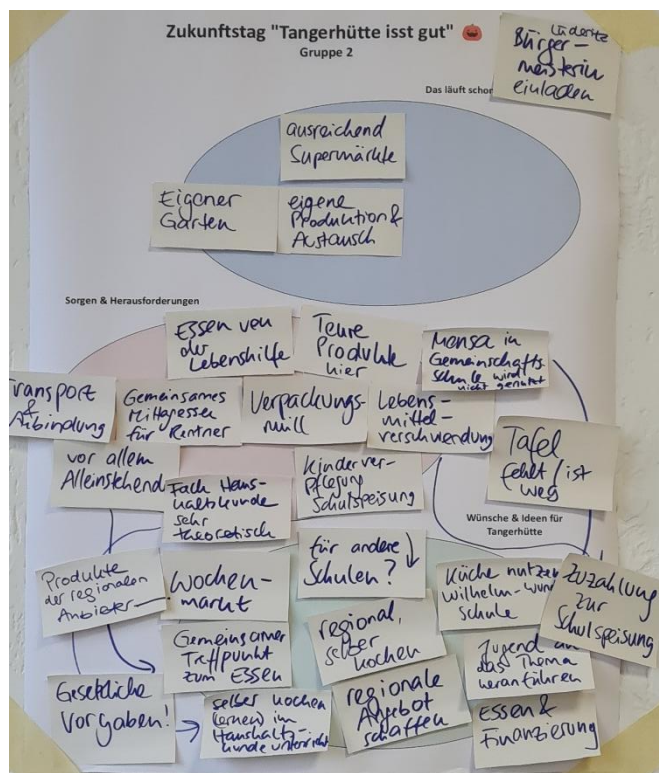 Zukunftstag "Tangerhütte isst gut"
Gruppe 2
Lüderitz
Bürger-
meisterin
einladen
Das läuft schon
ausreichend
Supermärkte
Eigener
Garten
eigene
Produktion &
Austausch
Sorgen & Herausforderungen
Essen von
der
Lebenshilfe
Teure
Produkte
hier
Mensa in
Gemeinschafts
schule wird
nicht genutzt
Transport
&
Anbindung
Gemeinsames
Mittagessen
für Rentner
Verpackungs-
müll
Lebens-
mittel-
verschwendung
Tafel
fehlt / ist
weg
vor allem
Alleinstehend
Fach Haus-
haltskunde
sehr
theoretisch
Kinderver-
pflegung
Schulspeisung
Wünsche & Ideen für
Tangerhütte
Produkte
der regionalen
Anbieter
Wochen-
markt
für andere
Schulen?
Küche nutzen
Wilhelm-Wun
schule
Zuzahlung
zur
Schulspeisung
Gemeinsamer
Treffpunkt
zum Essen
regional,
selber
kochen
Jugend an
das Thema
heranführen
Gesetzliche
Vorgaben!
selber kochen
(lernen) im
Haushalts-
kundeunterricht
regionale
Angebot
schaffen
Essen &
Finanzierung